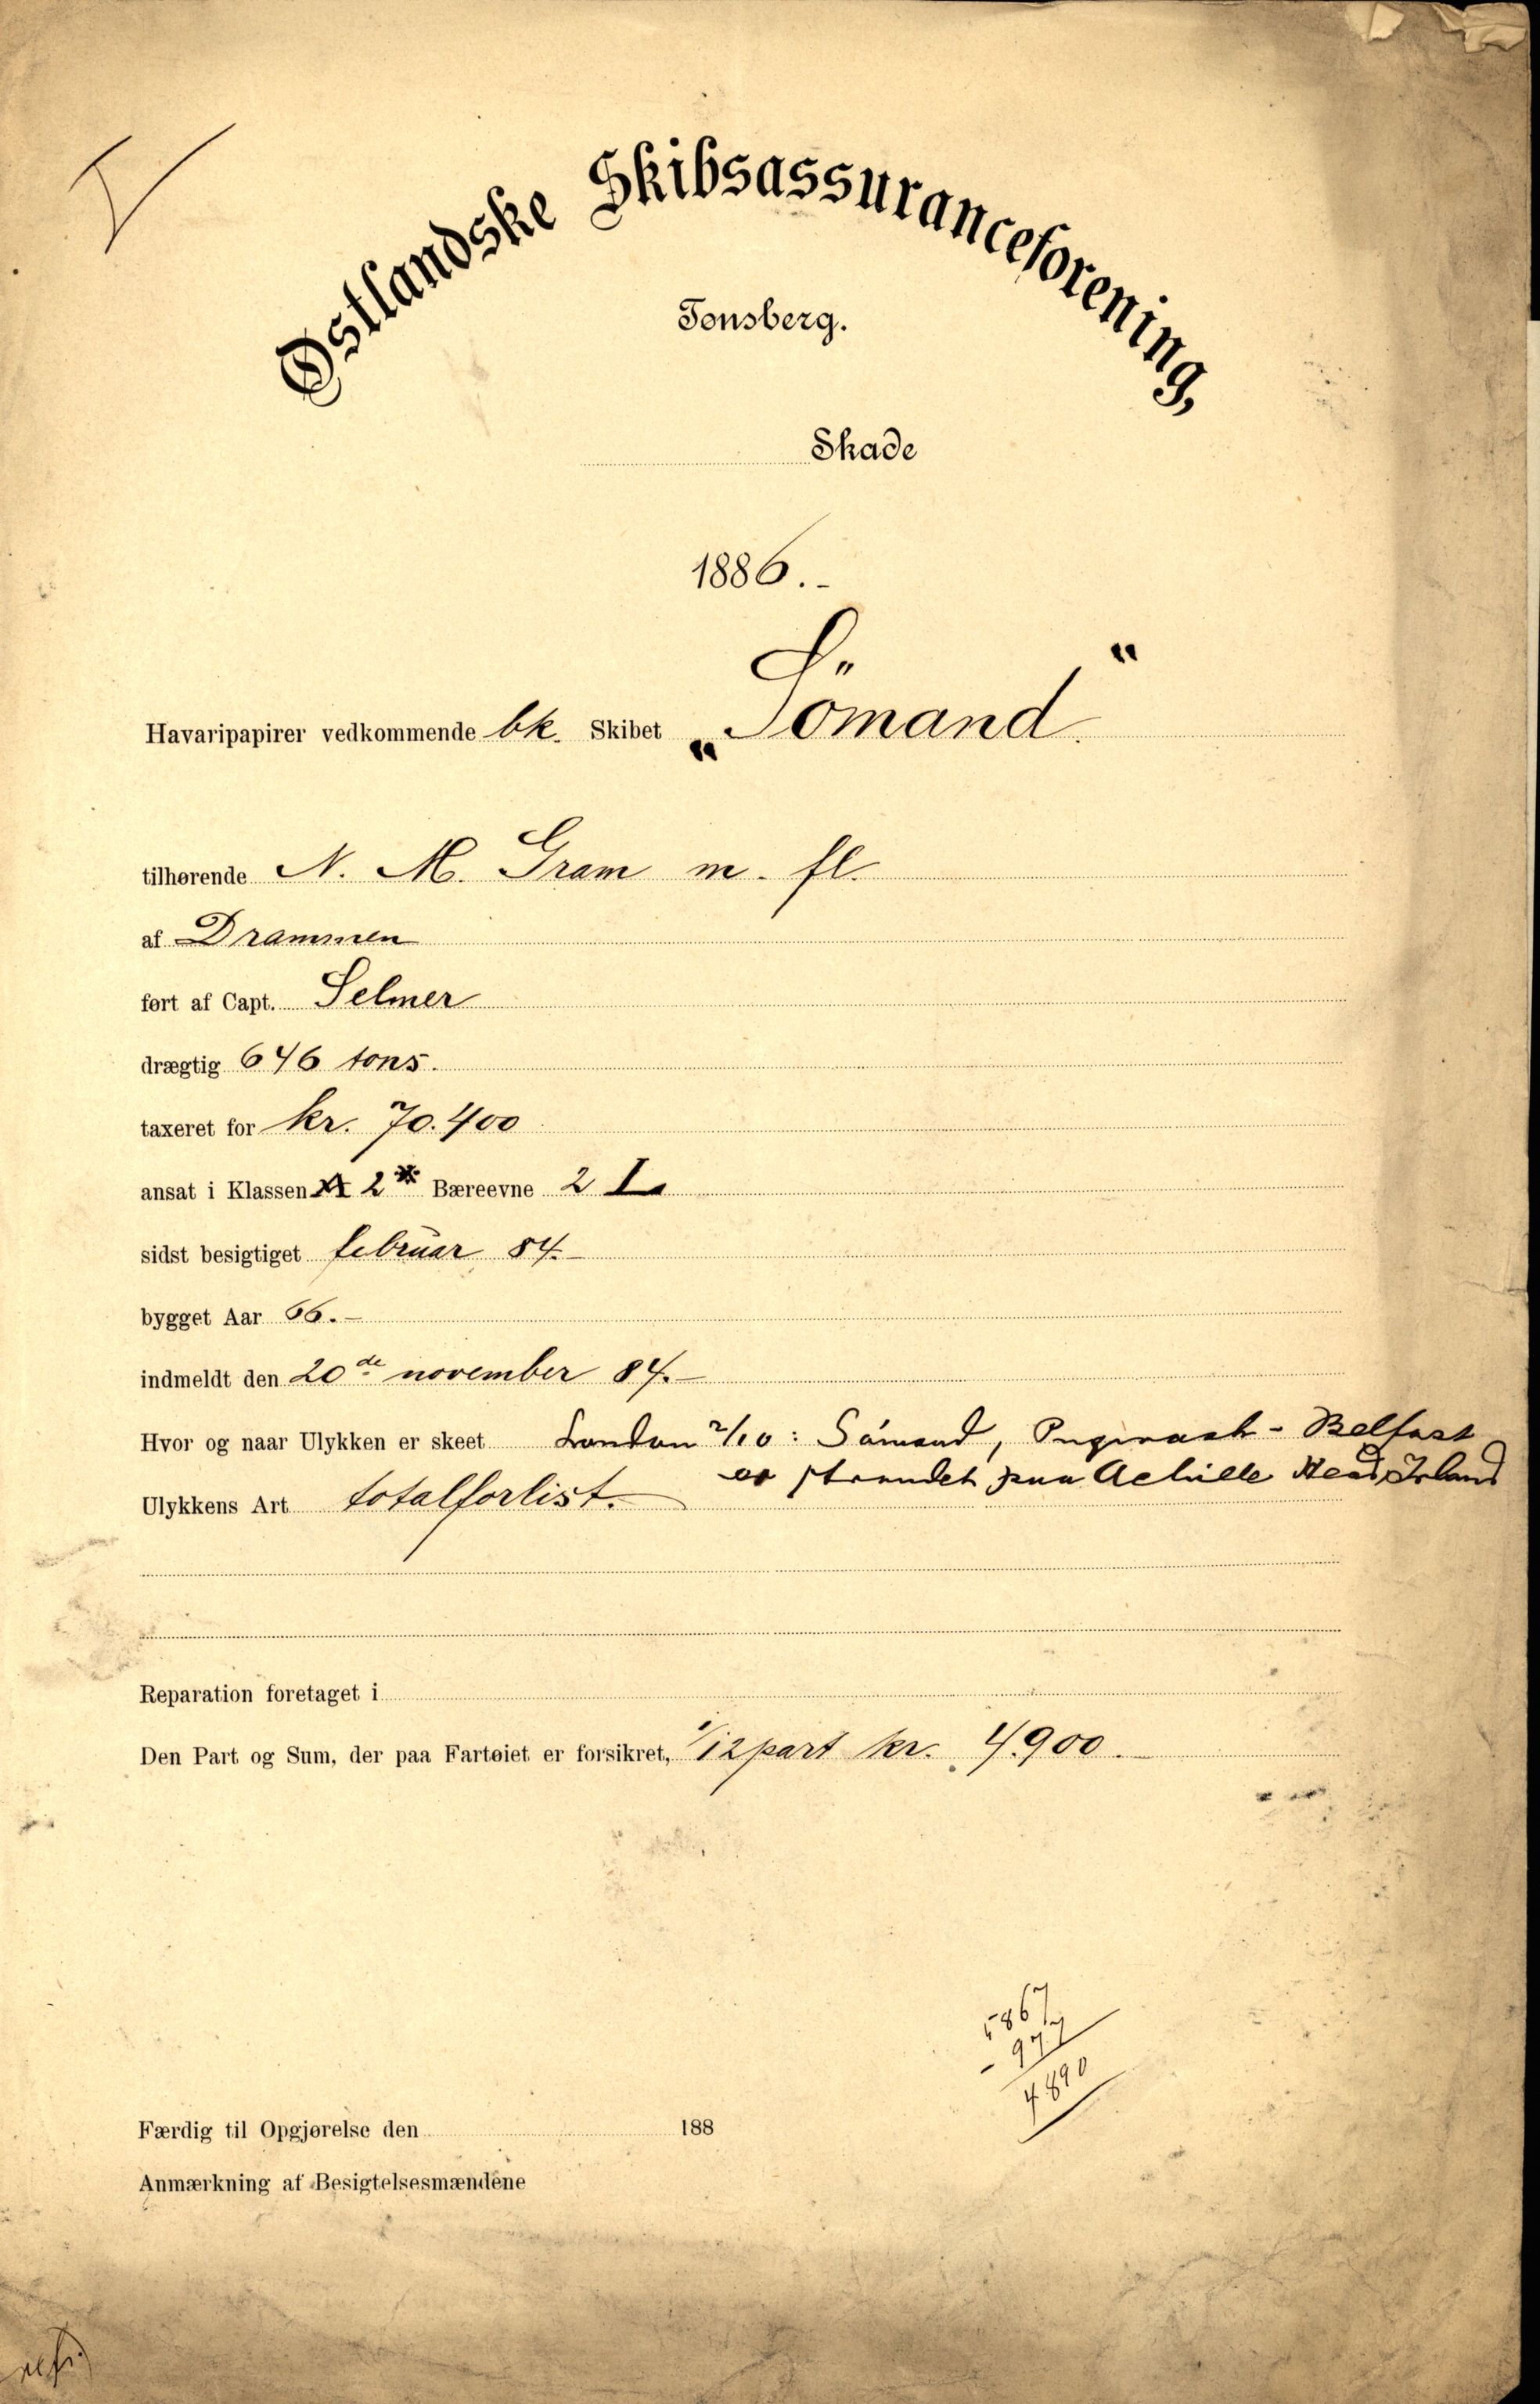 Østlandske Skibsassuranceforening,
Tønsberg.
Skade
1886.-
Havaripapirer vedkommende bk. Skibet „Sömand“
tilhørende N. M. Gram m. fl.
af Drammen
ført af Capt. Selmer
drægtig 646 tons.
taxeret for kr. 70.400
ansat i Klassen A 2* Bæreevne 2 L
sidst besigtiget februar 84.-
bygget Aar 66.-
indmeldt den 20de november 84.-
Hvor og naar Ulykken er skeet London 2/10: Sömand, Pugwash - Belfast
er strandet paa Achille Head Irland
Ulykkens Art totalforlist.
Reparation foretaget i
Den Part og Sum, der paa Fartøiet er forsikret, 1/12 part kr. 4.900.-
5867
- 977
4890
Færdig til Opgjørelse den 188
Anmærkning af Besigtelsesmændene